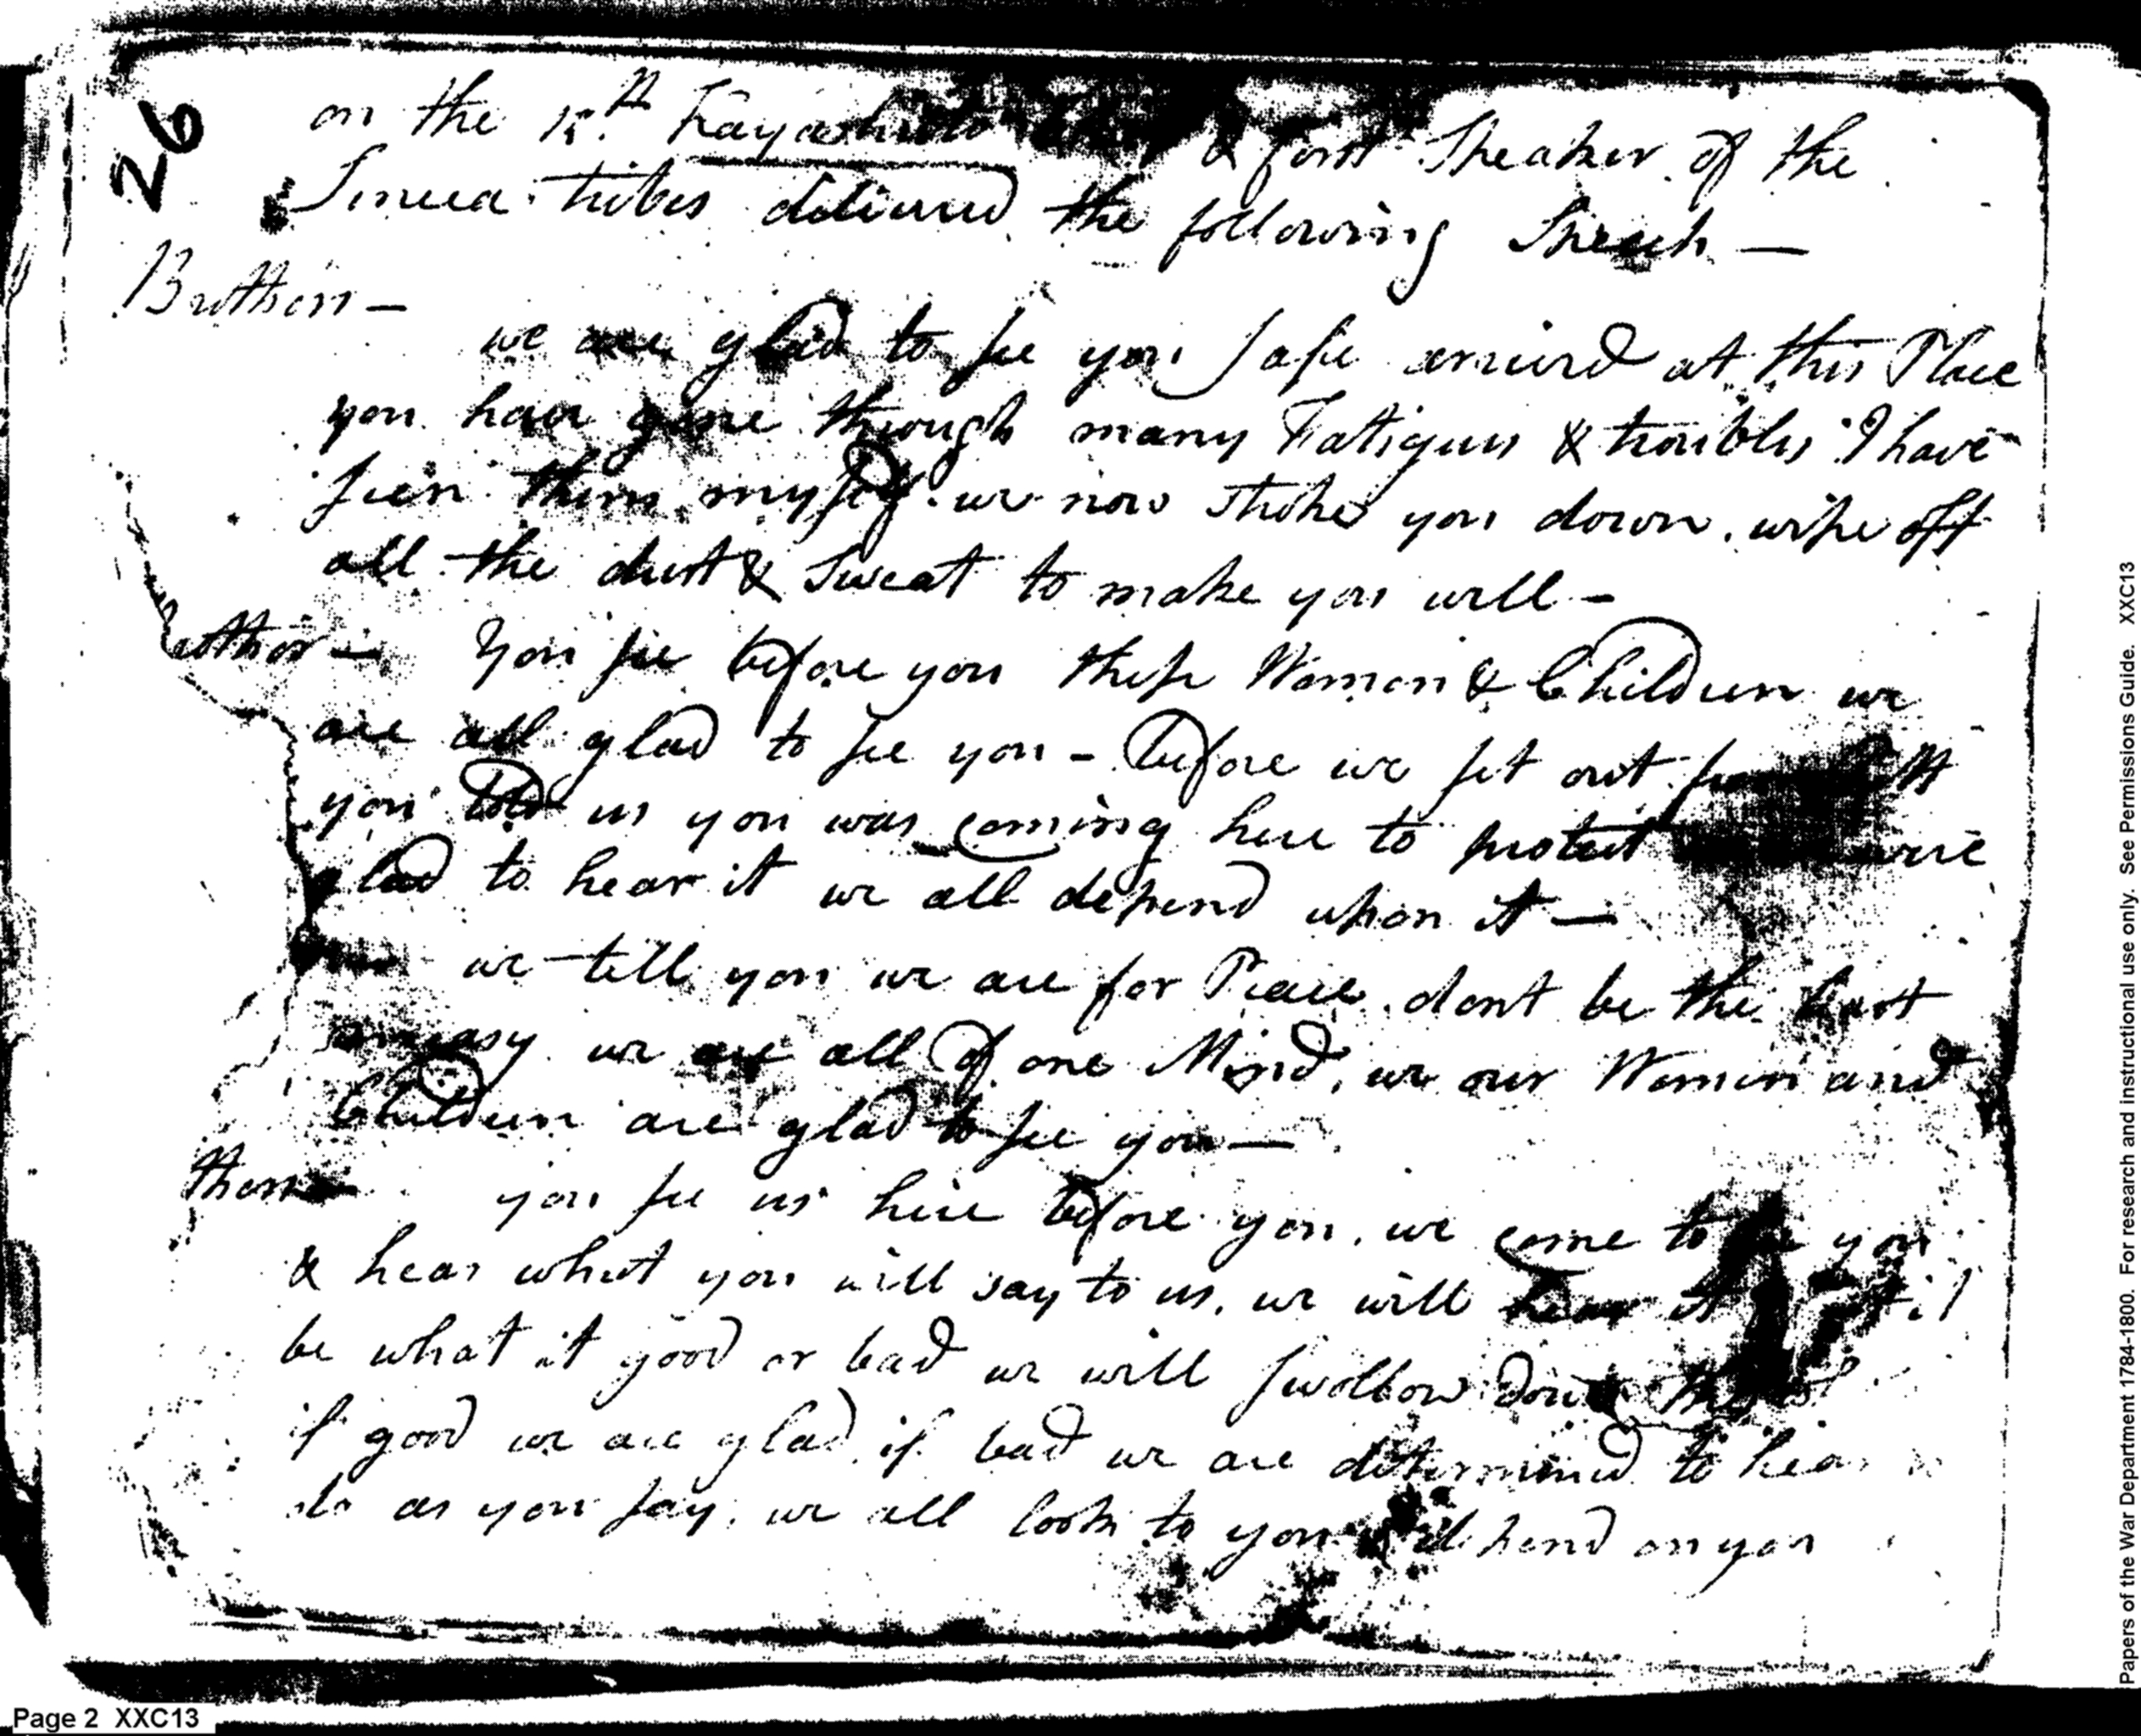 26
on the 12th Kayashuta & first Speaker of the
Seneca tribes delivered the following Speech —
Brothers —
we are glad to see you safe arrived at this Place
you have gone through many Fatigues & troubles I have
seen them myself. we now stroke you down, wipe off
all the dust & Sweat to make you well —
Brother — You see before you these Women & Children we
are all glad to see you — before we set out from
you told us you was coming here to protect were
glad to hear it we all depend upon it —
we tell you we are for Peace, dont be the least
uneasy we are all of one Mind, we our Women and
Children are glad to see you —
thers you see us here before you, we come to see you
& hear what you will say to us, we will hear it
be what it good or bad we will swallow down
if good we are glad, if bad we are determined to hear
do as you say, we all look to you depend on you
Page 2 XXC13
Papers of the War Department 1784-1800. For research and instructional use only. See Permissions Guide. XXC13